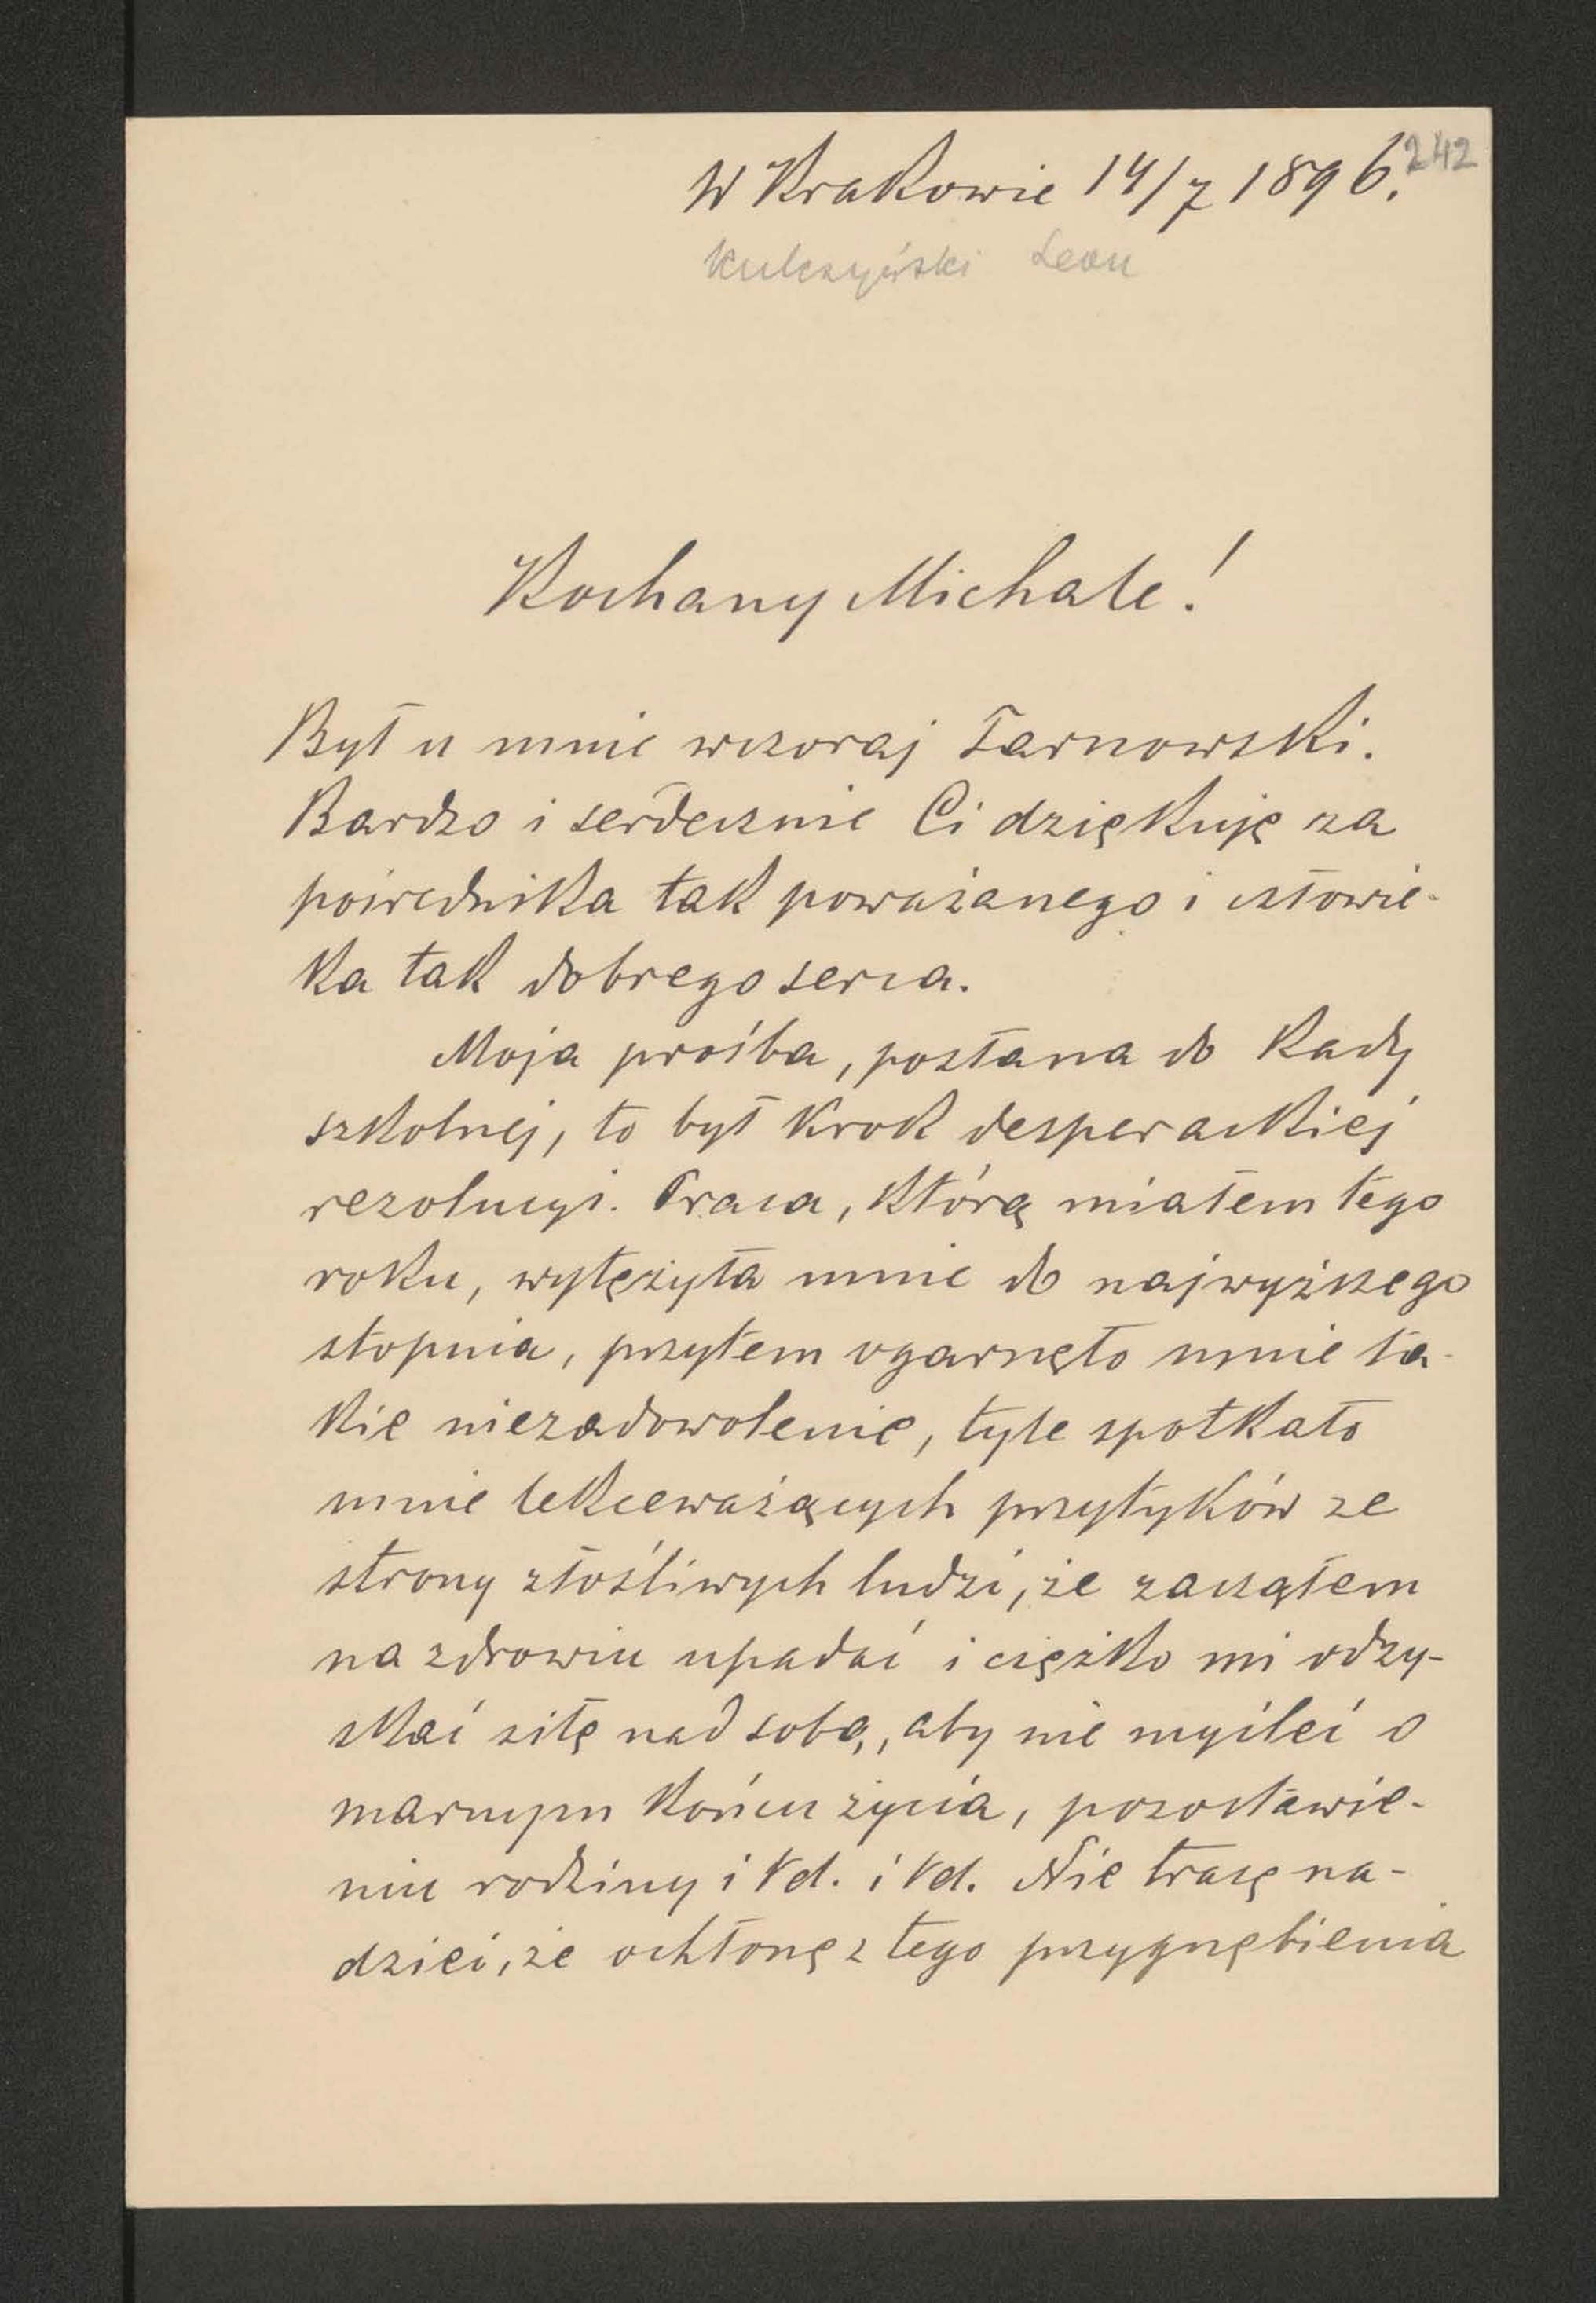 242
W Krakowie 14/7 1896.
Kulczyński Leon
Kochany Michale!
Był u mnie wczoraj Tarnowski.
Bardzo i serdecznie Ci dziękuję za
pośrednika tak poważanego i człowie-
ka tak dobrego serca.
Moja prośba, posłana do Rady
szkolnej, to był krok desperackiej
rezolucyi. Praca, którą miałem tego
roku, wytężyła mnie do najwyższego
stopnia, przytem ogarnęło mnie ta-
kie niezadowolenie, tyle spotkało
mnie lekceważących przytyków ze
strony złośliwych ludzi, że zacząłem
na zdrowiu upadać i ciężko mi odzy-
skać siłę nad sobą, aby nie myśleć o
marnym końcu życia, pozostawie-
niu rodziny i td. i td. Nie tracę na-
dziei, że ochłonę z tego przygnębienia